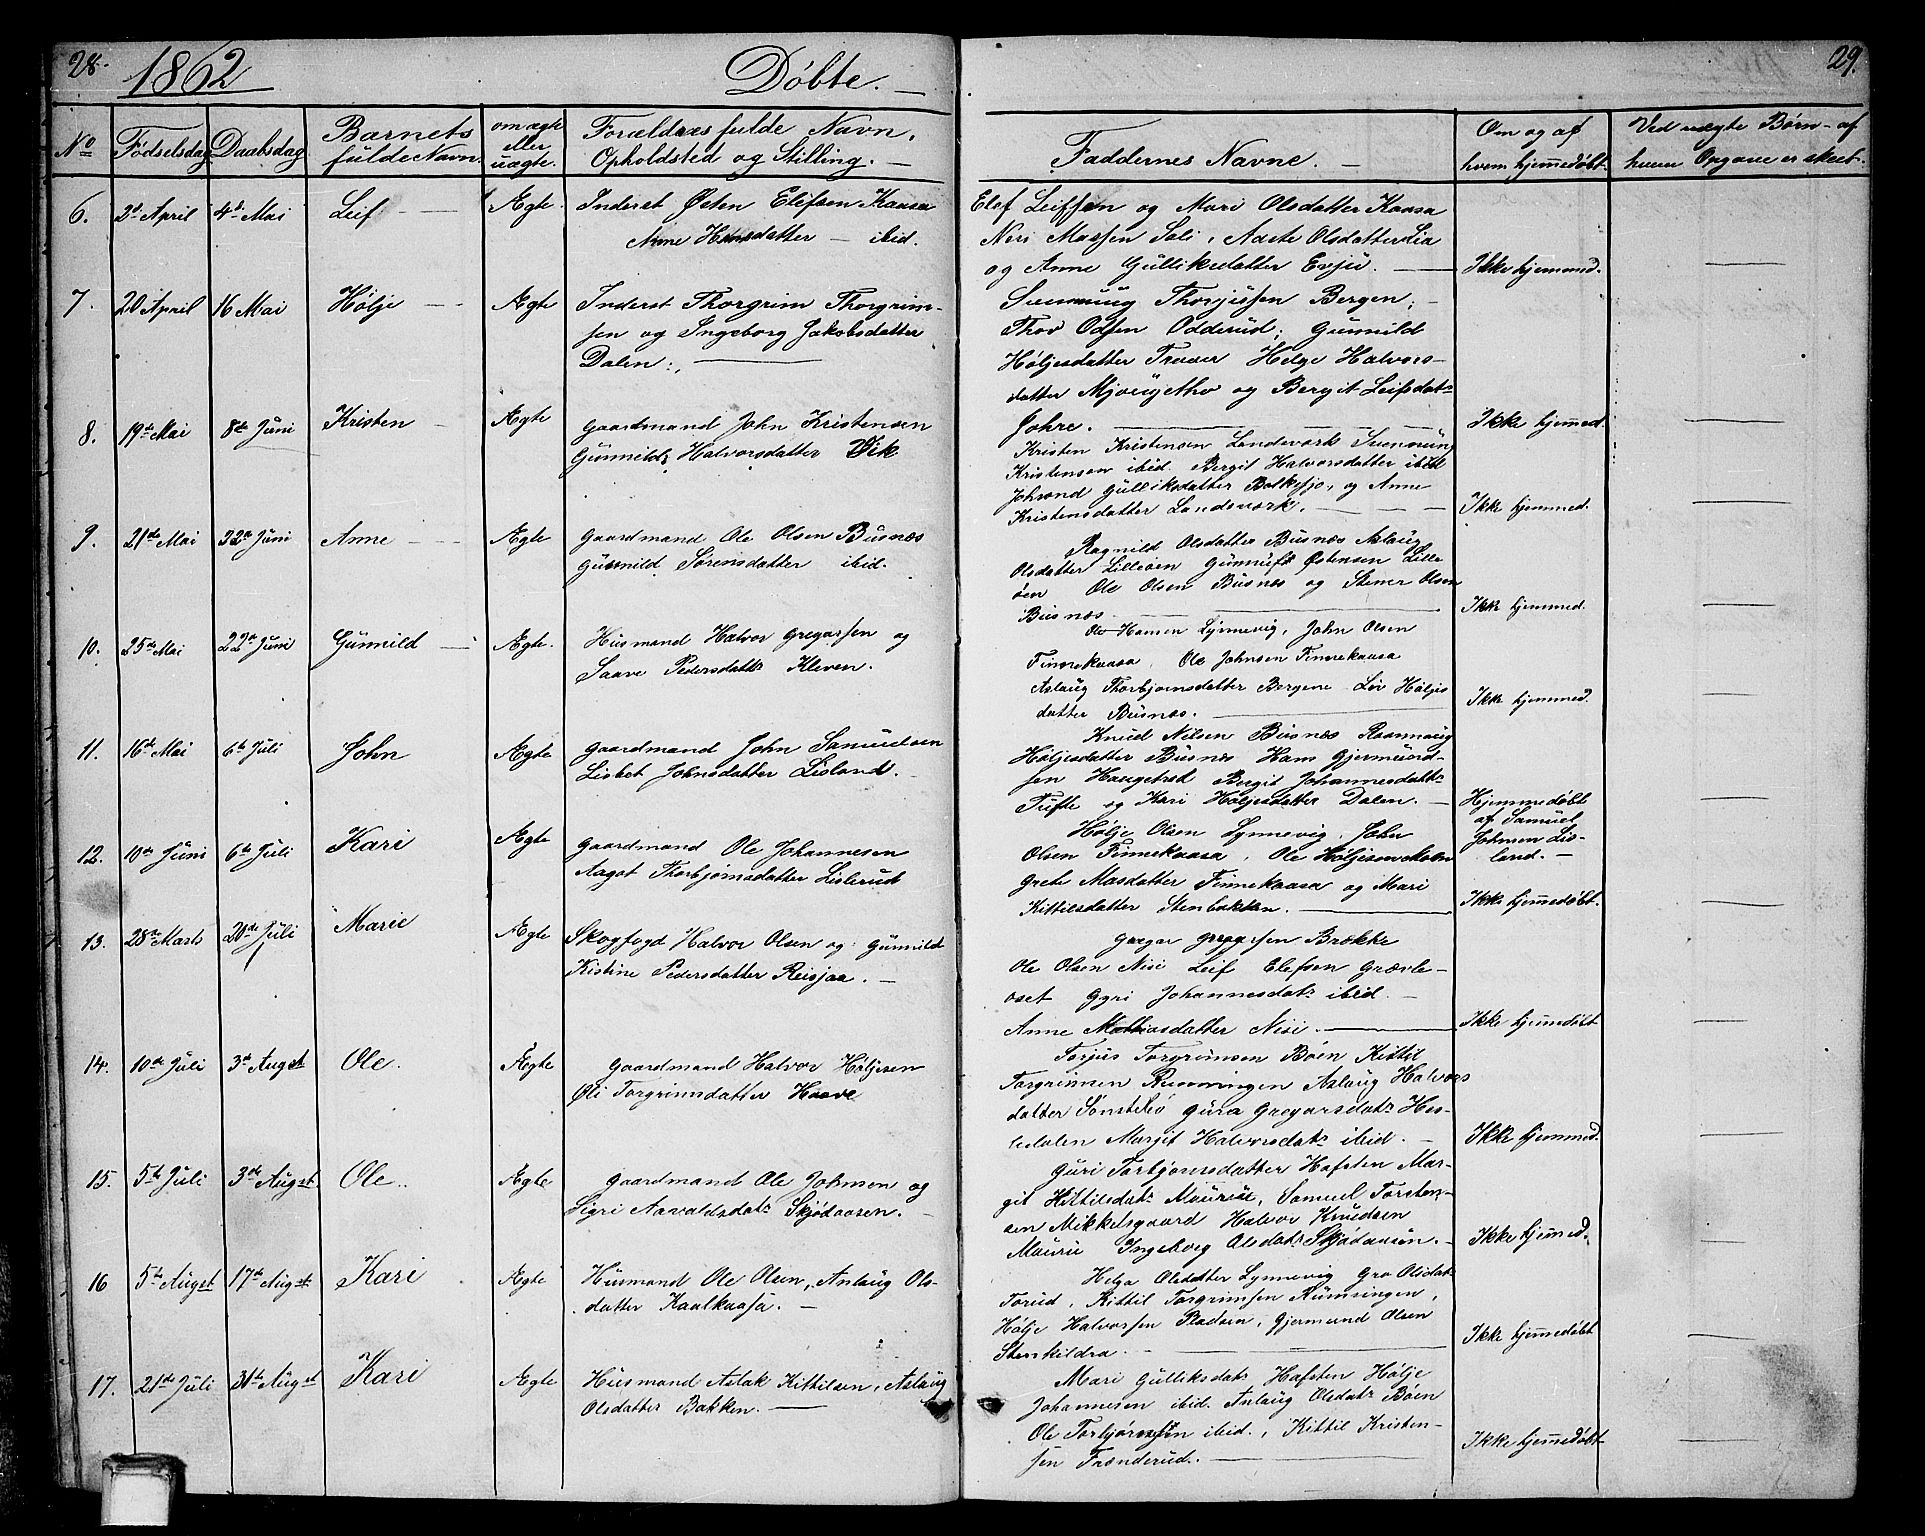 28.
1862
Døbte.
29.
No
Fødselsdag
Daabsdag
Barnets
fulde Navn.
om ægte
eller
uægte.
Forældres fulde Navn,
Opholdsted og Stilling.
Faddernes Navne.
Om og af
hvem hjemmedøbt
Ved uægte Børn - af
hvem Opgave er skeet.
6. 2d April 4de Mai Leif Ægte. Inderst Østen Elefsen Kaasa
Anne Hansdatter - ibid.
Elef Leifsen og Mari Olsdatter Kaasa
Neri Massen Soli, Aaste Olsdatter Lia
og Anne Gulliksdatter Evju.
Ikke hjemmed.
7. 20 April 16 Mai Hølje Ægte Inderst Thorgrim Thorgrim-
sen og Ingeborg Jakobsdatter
Dalen.
Svennung Thorjussen Bergen,
Thov Odsen Odderud, Gunnild
Høljesdatter Traaer Helge Halvors-
datter Mjøugethv og Bergit Leifsdatr
Johre.
Ikke hjemmed.
8. 19de Mai 8de Juni Kristen Ægte Gaardmand John Kristensen
Gunnild Halvorsdatter Vik
Kristen Kristensen Landsverk Svennung
Kristensen ibid. Bergit Halvorsdatter ibid
Johrand Gulliksdatter Bolkesjo, og Anne
Kristensdatter Landsverk.
Ikke hjemmed.
9. 21de Mai 22de Juni Anne Ægte Gaardmand Ole Olsen Busnæs
Gunnild Sørensdatter ibid.
Ragnild Olsdatter Busnæs Aslaug
Olsdatter Lilleøen Gunnulf Østensen Lille
øen Ole Olsen Busnæs og Stener Olsen
Busnæs
Ikke hjemmed.
10. 25de Mai 22de Juni Gunnild Ægte. Husmand Halvor Gregarsen og
Saave Pedersdatt Kleven.
Ole Hansen Lynnevig, John Olsen
Finnekaasa, Ole Johnsen Finnekaasa
Aslaug Thorbjornsdatter Bergene Liv Høljes
datter Busnæs.
Ikke hjemmed.
11. 16de Mai 6te Juli John Ægte Gaardmand John Samuelsen
Lisbet Johnsdatter Lisland.
Knud Nilsen Busnæs Raannaug
Høljesdatter Busnæs Hans Gjermund-
sen Haugestad Bergit Johannesdatt
Tufte og Kari Høljesdatter Dalen.
Hjemmedøbt
af Samuel
Johnsen Lis-
land.
12. 10de Juni 6te Juli Kari Ægte Gaardmand Ole Johannesen
Aagot Thorbjørnsdatter Lislerud
Hølje Olsen Lynnevig, John
Olsen Finnekaasa, Ole Høljesen Moen
Grete Masdatter Finnekaasa og Mari
Kittilsdatter Stenbakken.
Ikke hjemmedøbt.
13. 28de Marts 20de Juli Marie Ægte Skogfogd Halvor Olsen og Gunnild
Kistine Pedersdatter Reisjaa.
Gregar Gregarsen Brække
Ole Olsen Nisi Leif Elefsen Grævle-
oset Gyri Johannesdatr ibid.
Anne Mathiasdatter Nisi.
Ikke hjemmedøbt
14. 10de Juli 3de Augst Ole. Ægte Gaardmand Halvor Høljesen
Øli Torgrimsdatter Haave
Torjus Torgrimsen Bøen Kittil
Torgrimsen Rumningen Aslaug Halvors
datter Sønstebø Gura Gregarsdatr Hes-
ledalen Margit Halvorsdatr ibid.
Ikke hjemmed.
15. 5te Juli 3de Augst Ole Ægte Gaardmand Ole Johnsen og
Sigri Aavaldsdatr Skjødaasen.
Guri Torbjornsdatter Hafsten Mar-
git Kittilsdatr Maurise, Samuel Torsten-
sen Mikkelsgaard Halvor Knudsen
Maurie Ingeborg Olsdatr Skjødaasen.
Ikke hjemmed.
16 5te Augst 17de Augst Kari Ægte Husmand Ole Olsen, Aslaug Ols-
datter Kaalkaasa.
Helga Olsdatter Lynnevig Gro Olsdatr
Torud, Kittil Torgrimsen Rumningen,
Hølje Halvorsen Pladsen, Gjermund Olsen
Stenkildra.
Ikke hjemmedøbt
17. 21de Juli 31te Augst Kari Ægte Husmand Aslak Kittilsen, Aslaug
Olsdatter Bakken.
Mari Gulliksdatr Hafsten Hølje
Johannesen ibid. Aslaug Olsdatr Bøen
Ole Torbjørnsen ibid., Kittil Kristen-
sen Trænderud.
Ikke hjemmedøbt